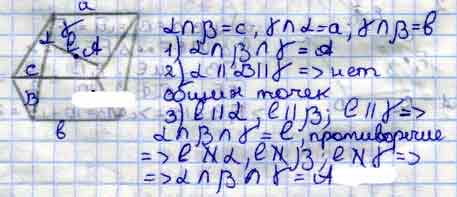 a
γ
α
ℓ
A
c
β
b
α∩β=c, γ∩α=a, γ∩β=b
1) α∩β∩γ=A
2) α∥β∥γ => нет
общих точек
3) ℓ∥α, ℓ∥β; ℓ∥γ =>
α∩β∩γ=ℓ, противоречие
=> ℓ∦α, ℓ∦β; ℓ∦γ =>
=> α∩β∩γ=A